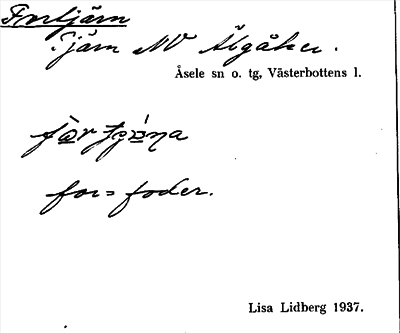 Fortjärn
Tjärn NV Älgåker.
Åsele sn o. tg, Västerbottens l.
for = foder.
Lisa Lidberg 1937.